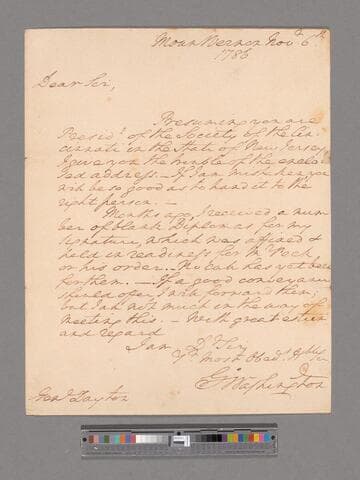 Mount Vernon Nov.r 6th
1786
Dear Sir,
Presuming you are
Presid.t of the Society of the Cin-
cinnati in the State of New Jersey
I give you the trouble of the enclo-
sed address. – If I am mistaken you
will be so good as to hand it to the
right person. –
Months ago, I received a num
ber of blank Diplomas for my
signature, which was affixed &
held in readiness for Mr
or his order. – has yet been
for them. – If a good conveyance
should offer, I will forward them,
but I am not much in the way of
meeting this. – With great esteem
and regard
I am D.r Sir
Y.r most Obed.t
G:o Washington
Gen.l Dayton